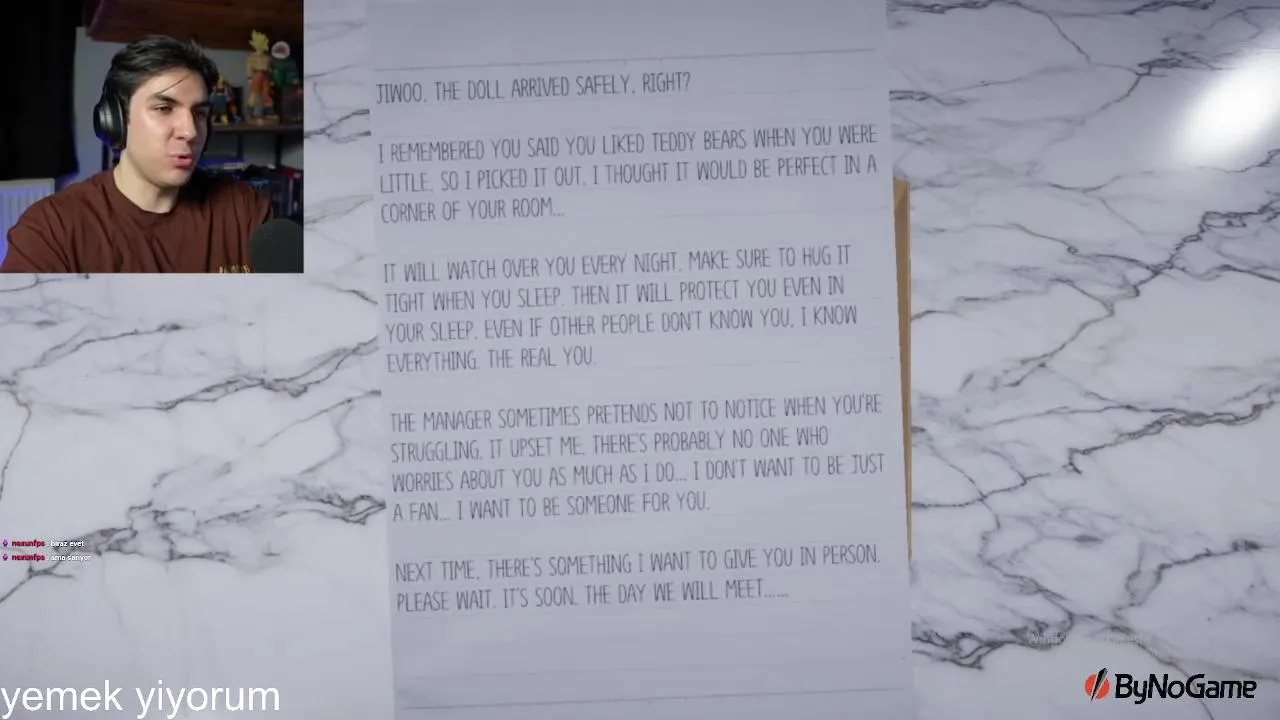 JIWOO, THE DOLL ARRIVED SAFELY, RIGHT?
I REMEMBERED YOU SAID YOU LIKED TEDDY BEARS WHEN YOU WERE
LITTLE, SO I PICKED IT OUT. I THOUGHT IT WOULD BE PERFECT IN A
CORNER OF YOUR ROOM...
IT WILL WATCH OVER YOU EVERY NIGHT. MAKE SURE TO HUG IT
TIGHT WHEN YOU SLEEP. THEN IT WILL PROTECT YOU EVEN IN
YOUR SLEEP. EVEN IF OTHER PEOPLE DON'T KNOW YOU, I KNOW
EVERYTHING. THE REAL YOU.
THE MANAGER SOMETIMES PRETENDS NOT TO NOTICE WHEN YOU'RE
STRUGGLING. IT UPSET ME. THERE'S PROBABLY NO ONE WHO
WORRIES ABOUT YOU AS MUCH AS I DO... I DON'T WANT TO BE JUST
A FAN... I WANT TO BE SOMEONE FOR YOU.
NEXT TIME, THERE'S SOMETHING I WANT TO GIVE YOU IN PERSON.
PLEASE WAIT. IT'S SOON. THE DAY WE WILL MEET......
nexunfps: biraz evet
nexunfps: ama sarıyor
yemek yiyorum
ByNoGame